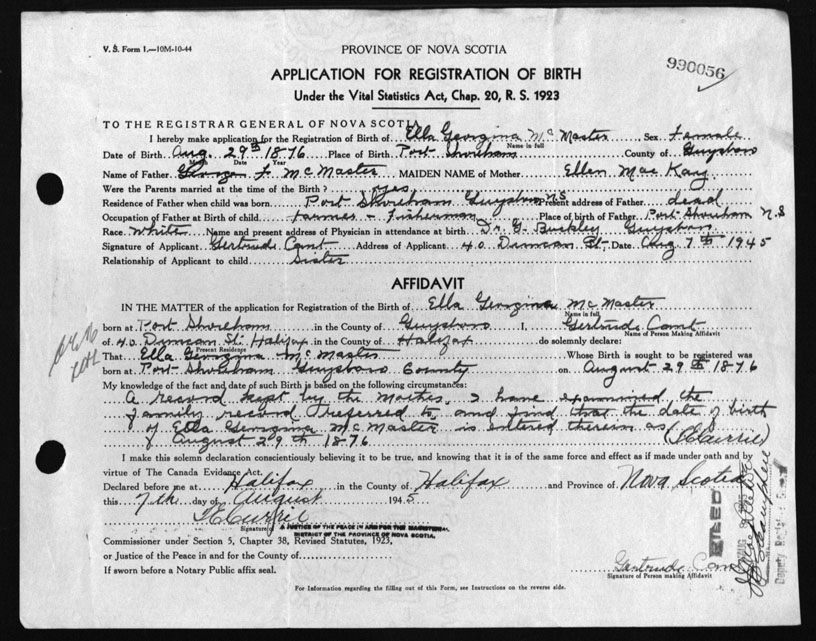 V. S. Form 1.—10M-10-44
PROVINCE OF NOVA SCOTIA
990056
APPLICATION FOR REGISTRATION OF BIRTH
Under the Vital Statistics Act, Chap. 20, R. S. 1923
TO THE REGISTRAR GENERAL OF NOVA SCOTIA
I hereby make application for the Registration of Birth of Ella Georgina McMaster Sex Female
Name in full
Date of Birth Aug. 29th 1876 Place of Birth Port Shoreham County of Guysboro
Month Date Year
Name of Father George F McMaster MAIDEN NAME of Mother Ellen MacKay
Were the Parents married at the time of the Birth? yes
Residence of Father when child was born Port Shoreham Guysboro N.S Present address of Father dead
Occupation of Father at Birth of child Farmer - Fisherman Place of birth of Father Port Shoreham N.S
Race White Name and present address of Physician in attendance at birth Dr. G. Buckley Guysboro
Signature of Applicant Gertrude Address of Applicant 40 Duncan St. Date Aug 7th 1945
Relationship of Applicant to child Sister
AFFIDAVIT
IN THE MATTER of the application for Registration of the Birth of Ella Georgina McMaster
Name in full
born at Port Shoreham in the County of Guysboro I, Gertrude
Name of Person Making Affidavit
of 40 Duncan St. Halifax in the County of Halifax do solemnly declare:
Present Residence
That Ella Georgina McMaster Whose Birth is sought to be registered was
born at Port Shoreham Guysboro County on August 29th 1876
My knowledge of the fact and date of such Birth is based on the following circumstances:
A record kept by the Mother. I have examined the
family record referred to and find that the date of birth
of Ella Georgina McMaster is entered therein as
August 29th 1876
I make this solemn declaration conscientiously believing it to be true, and knowing that it is of the same force and effect as if made under oath and by
virtue of The Canada Evidence Act.
Declared before me at Halifax in the County of Halifax and Province of Nova Scotia
this 7th day of August 1945
Signature of A JUSTICE OF THE PEACE IN AND FOR THE MAGISTERIAL
DISTRICT OF THE PROVINCE OF NOVA SCOTIA.
Commissioner under Section 5, Chapter 38, Revised Statutes, 1923,
or Justice of the Peace in and for the County of
If sworn before a Notary Public affix seal.
Gertrude
Signature of Person making Affidavit
FILED
AUG
Deputy
For Information regarding the filling out of this Form, see Instructions on the reverse side.